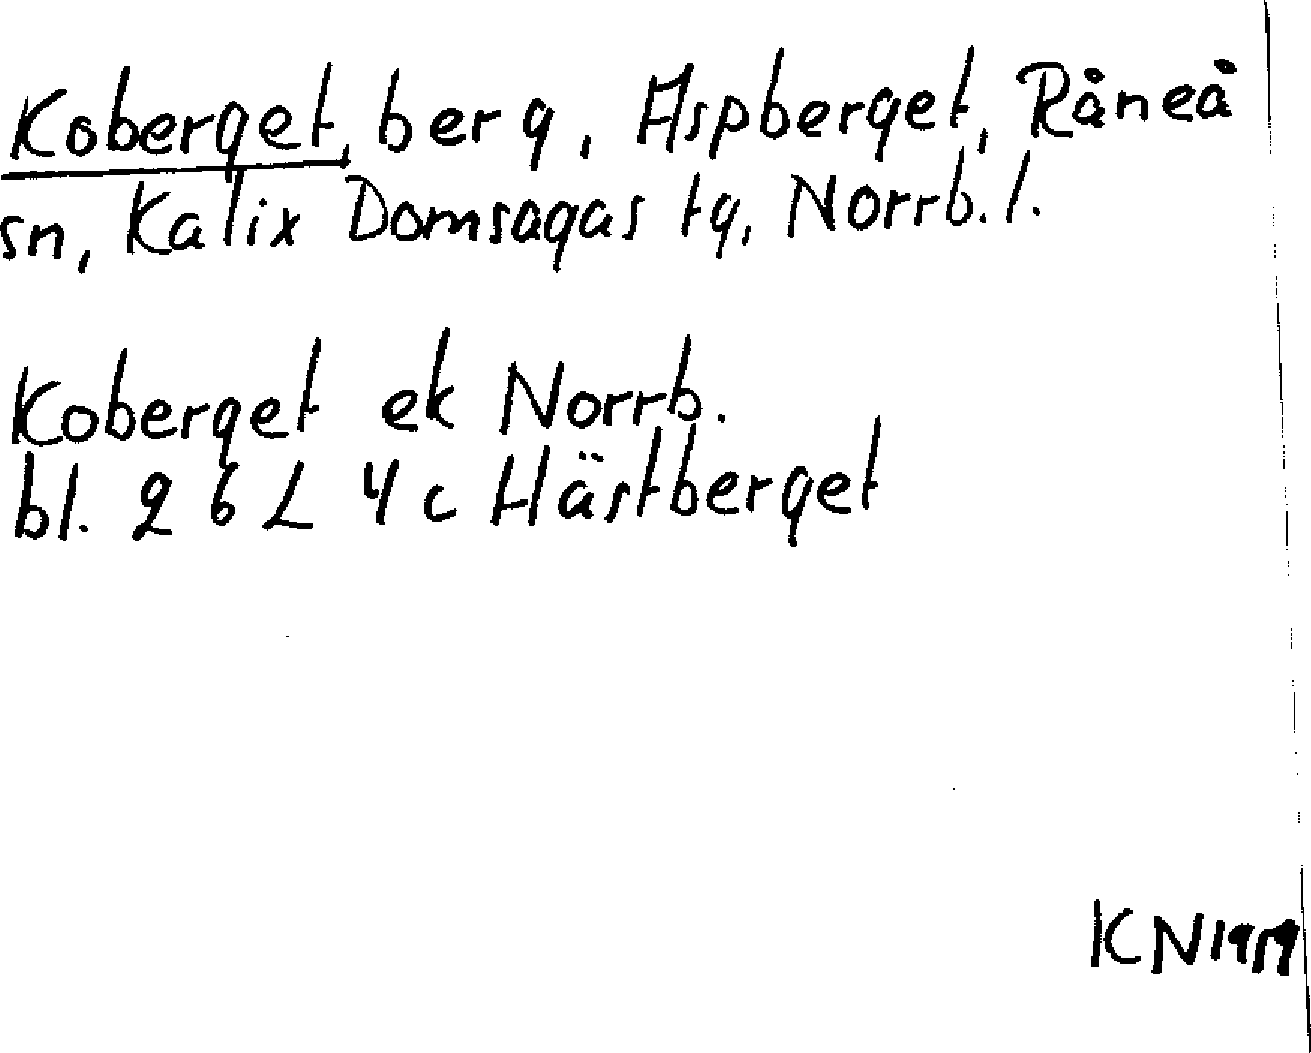 Koberget, berg, Aspberget, Råneå
sn, Kalix Domsagas tg, Norrb. l.
Koberget ek Norrb.
bl. 26 L 4 c Hästberget
KN 1959